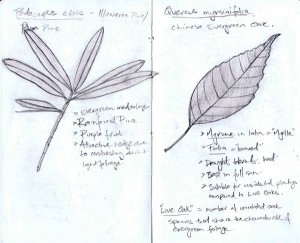 Podocarpus elatus - Illawarra Plum/
Plum Pine
> Evergreen
> Rainforest Pine
> Purple fruit
> Attractive hedge due
to contrasting dark &
light foliage
Quercus myrsinifolia
Chinese Evergreen Oak.
> Myrsine in latin = "Myrtle"
> Folia = "leaved"
> Drought tolerant
> Best in full sun
> Suitable for
compared to Live Oaks.
"Live Oak" = number of unrelated oak
species that share the characteristic of
evergreen foliage